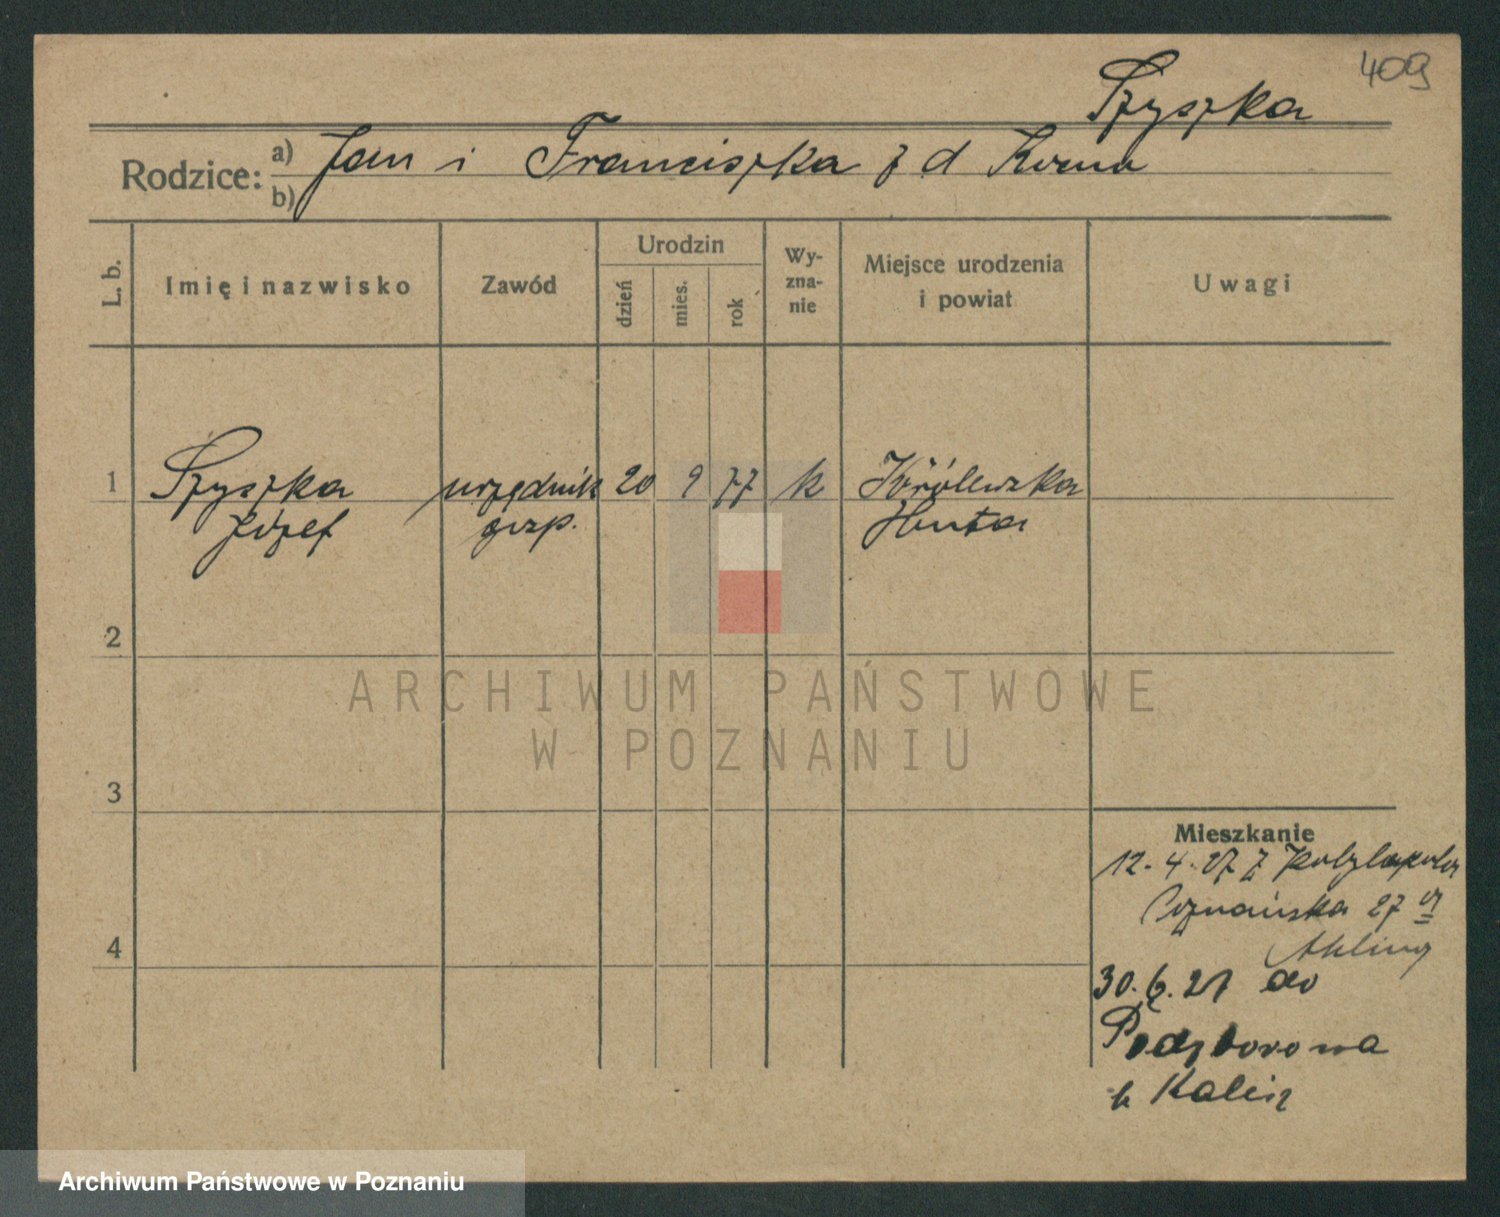 409
Szyszka
Rodzice: a) Jan i Franciszka z d
b)
L. b.
Imię i nazwisko
Zawód
Urodzin
dzień
mies.
rok
Wy-
zna-
nie
Miejsce urodzenia
i powiat
Uwagi
1 Szyszka urzędnik 20 9 77 k Królewska
Józef gosp. Huta
2
3
4
ARCHIWUM PAŃSTWOWE
W POZNANIU
Mieszkanie
12.4.27 z Kobylepola
Poznańska 27
30.6.27 do
k Kalisz
Archiwum Państwowe w Poznaniu